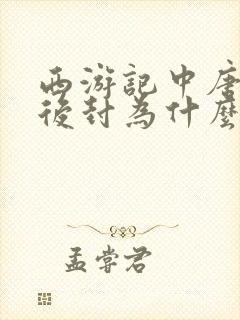 西游記中唐
後封為什麼
孟嘗君